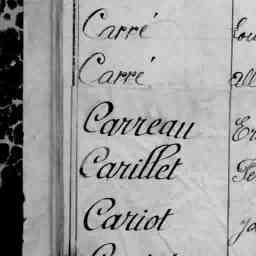 Carré
Carré
Carreau
Carillet
Cariot